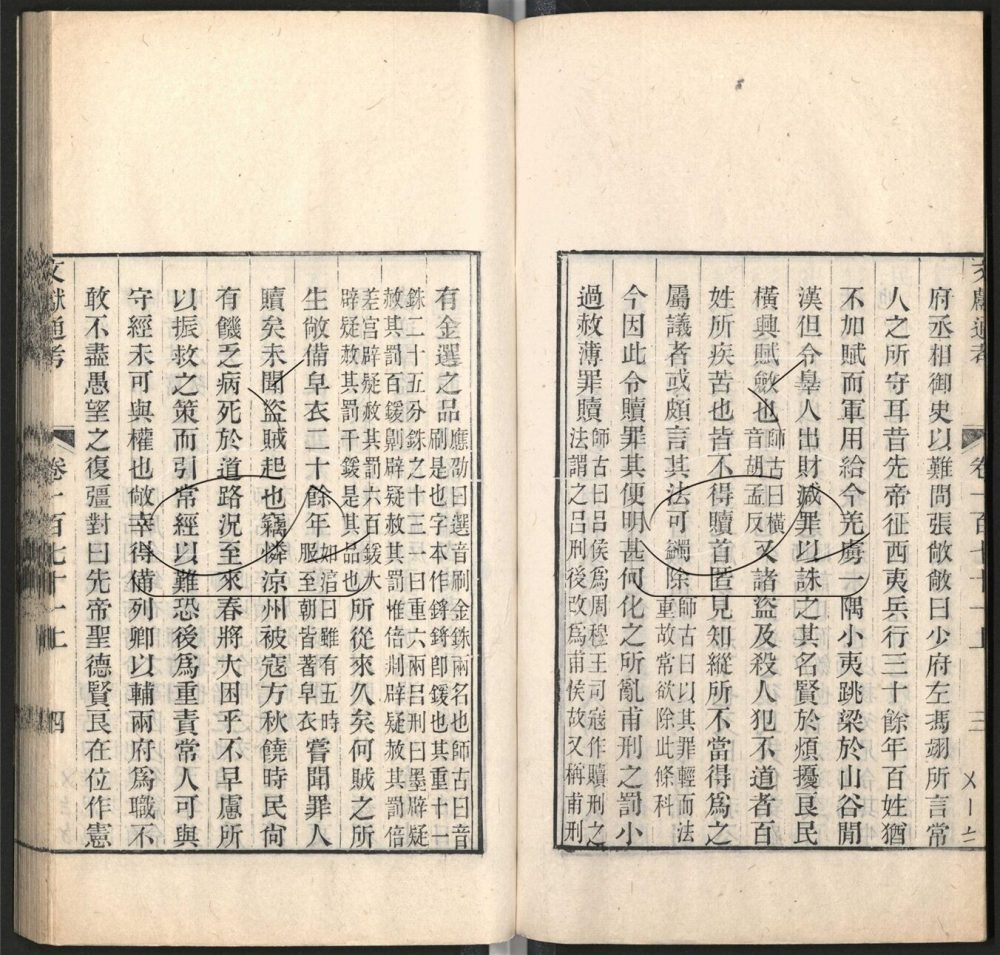 文獻通考
卷一百七十一上
三
府丞相御史以難問張敞敞曰少府左馮翊所言常
人之所守耳昔先帝征西夷兵行三十餘年百姓猶
不加賦而軍用給今羌虜一隅小夷跳梁於山谷閒
漢但令辠人出財減罪以誅之其名賢於煩擾良民
橫興賦斂也師古曰橫音胡孟反又諸盜及殺人犯不道者百
姓所疾苦也皆不得贖首匿見知縱所不當得爲之
屬議者或頗言其法可蠲除師古曰以其罪輕而法重故常欲除此條科
今因此令贖罪其便明甚何化之所亂甫刑之罰小
過赦薄罪贖師古曰呂侯爲周穆王司寇作贖刑之法謂之呂刑後改爲甫侯故又稱甫刑
有金選之品應劭曰選音刷金銖兩名也師古曰音刷是也字本作鋝鋝卽鍰也其重十一
銖二十五分銖之十三一曰重六兩呂刑曰墨辟疑赦其罰百鍰劓辟疑赦其罰惟倍剕辟疑赦其罰倍
差宮辟疑赦其罰六百鍰大辟疑赦其罰千鍰是其品也所從來久矣何賊之所
生敞備皁衣二十餘年如淳曰雖有五時服至朝皆著皁衣嘗聞罪人
贖矣未聞盜賊起也竊憐涼州被寇方秋饒時民尙
有饑乏病死於道路況至來春將大困乎不早慮所
以振救之策而引常經以難恐後爲重責常人可與
守經未可與權也敞幸得備列卿以輔兩府爲職不
敢不盡愚望之復彊對曰先帝聖德賢良在位作憲
文獻通考
卷一百七十一上
四